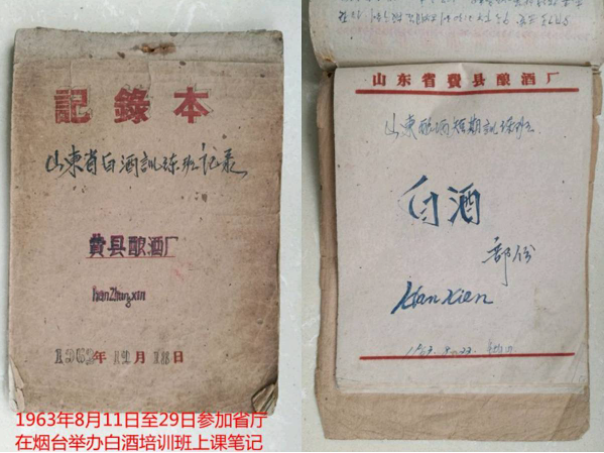 記錄本
山東省白酒訓练班记录
費县酿酒厂
1962年12月18日
山东省費县酿酒厂
山東酿酒短期訓练班
白酒
部份
HanXian
1963年8月11日至29日参加省厅
在烟台举办白酒培训班上课笔记